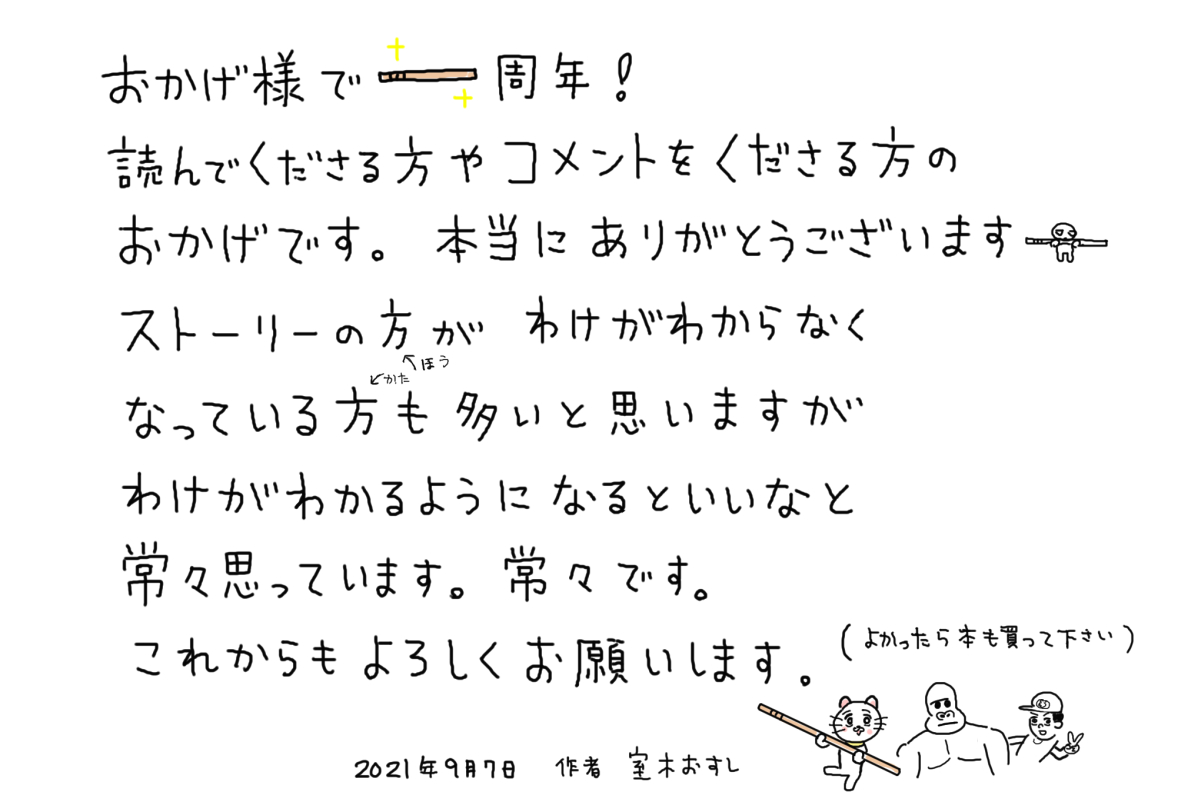 おかげ様で一周年！
読んでくださる方やコメントをくださる方の
おかげです。 本当にありがとうございます
ストーリーの方が わけがわからなく
←ほう
←かた
なっている方も多いと思いますが
わけがわかるようになるといいなと
常々思っています。常々です。
これからもよろしくお願いします。
(よかったら本も買って下さい)
2021年9月7日 作者 室木おすし